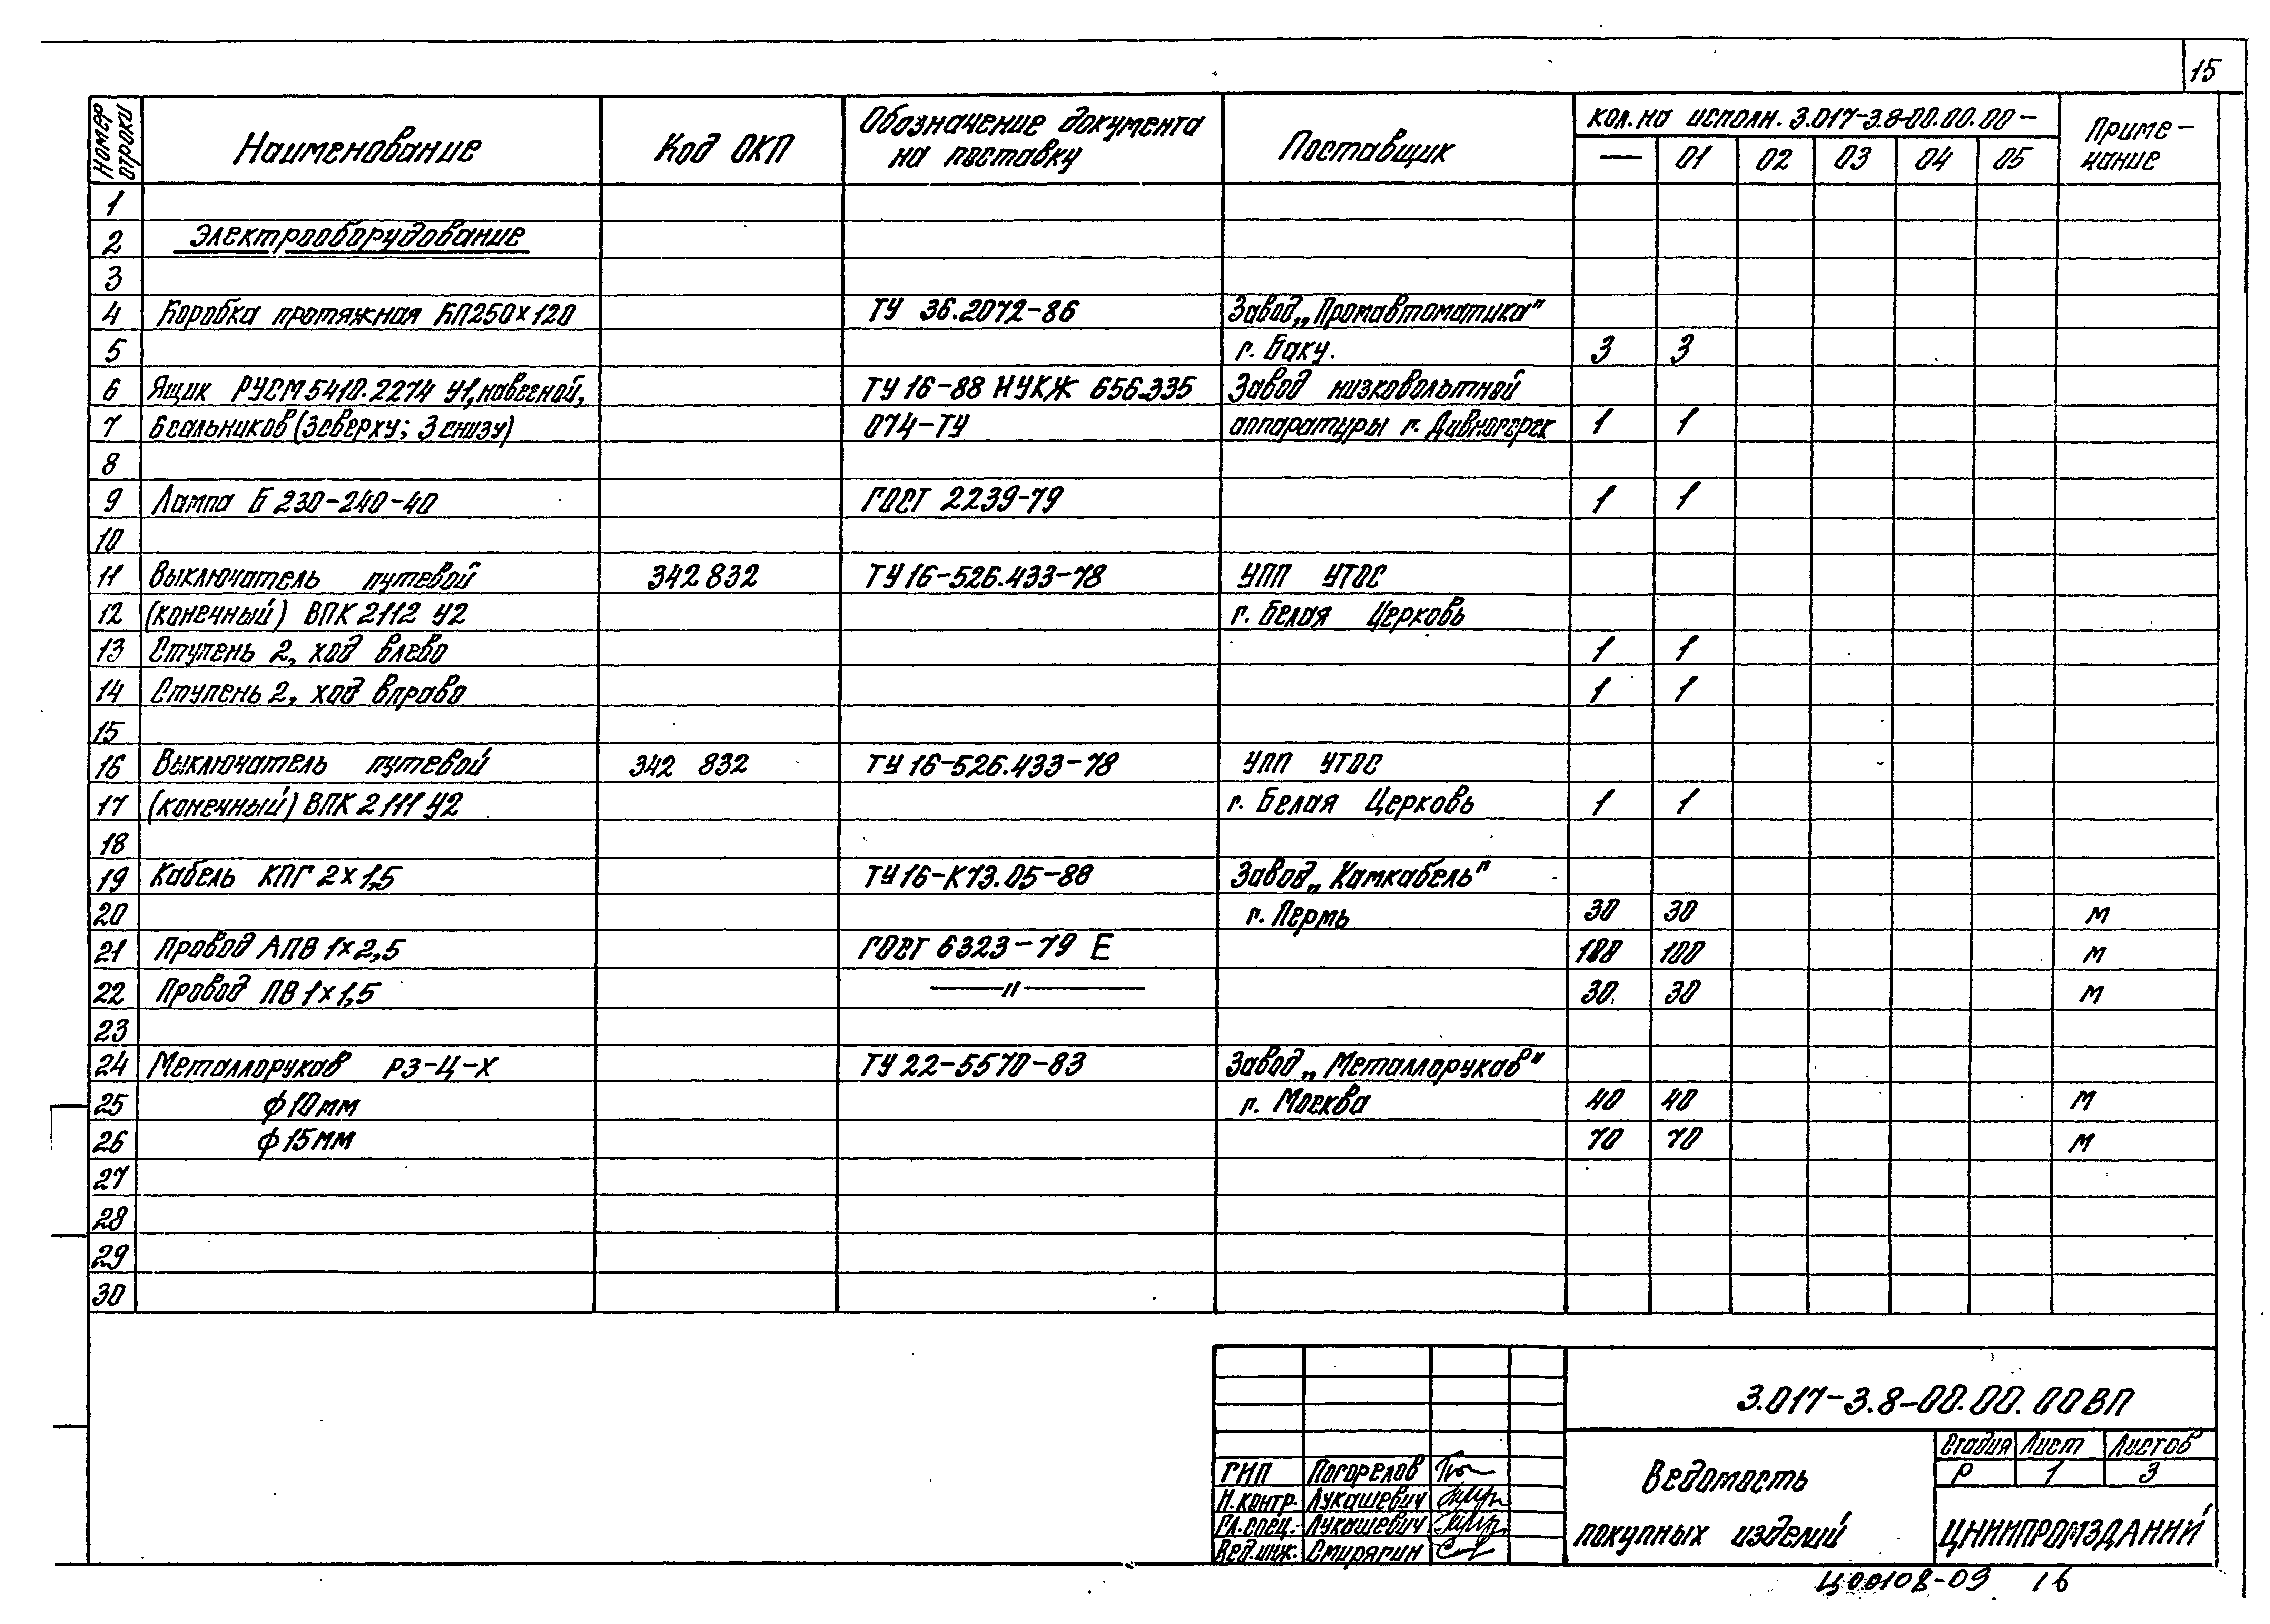 15
Номер строки Наименование Код ОКП Обозначение документа на поставку Поставщик кол. на исполн. 3.017-3.8-00.00.00- Приме-чание
— 01 02 03 04 05
1
2 Электрооборудование
3
4 Коробка протяжная КП250×120 ТУ 36.2072-86 Завод „Промавтоматика"
5 г. Баку. 3 3
6 Ящик РУСМ5410.2274 У1, навесной, ТУ 16-88 ИУКЖ 656.335 Завод низковольтной
7 6 сальников (3 сверху; 3 снизу) 074-ТУ аппаратуры г. Дивногорск 1 1
8
9 Лампа Б 230-240-40 ГОСТ 2239-79 1 1
10
11 Выключатель путевой 342 832 ТУ 16-526.433-78 УПП УТОС
12 (конечный) ВПК 2112 У2 г. Белая Церковь
13 Ступень 2, ход влево 1 1
14 Ступень 2, ход вправо 1 1
15
16 Выключатель путевой 342 832 ТУ 16-526.433-78 УПП УТОС
17 (конечный) ВПК 2111 У2 г. Белая Церковь 1 1
18
19 Кабель КПГ 2×1,5 ТУ 16-К73.05-88 Завод „Камкабель"
20 г. Пермь 30 30 м
21 Провод АПВ 1×2,5 ГОСТ 6323-79 Е 100 100 м
22 Провод ПВ 1×1,5 —"— 30 30 м
23
24 Металлорукав РЗ-Ц-Х ТУ 22-5570-83 Завод „Металлорукав"
25 ф 10мм г. Москва 40 40 м
26 ф 15мм 70 70 м
27
28
29
30
3.017-3.8-00.00.00ВП
Ведомость
покупных изделий
Стадия Лист Листов
Р 1 3
ЦНИИПРОМЗДАНИЙ
ГИП Погорелов
Н.контр. Лукашевич
Гл.спец. Лукашевич
Вед.инж. Смирягин
Ц00108-09 16